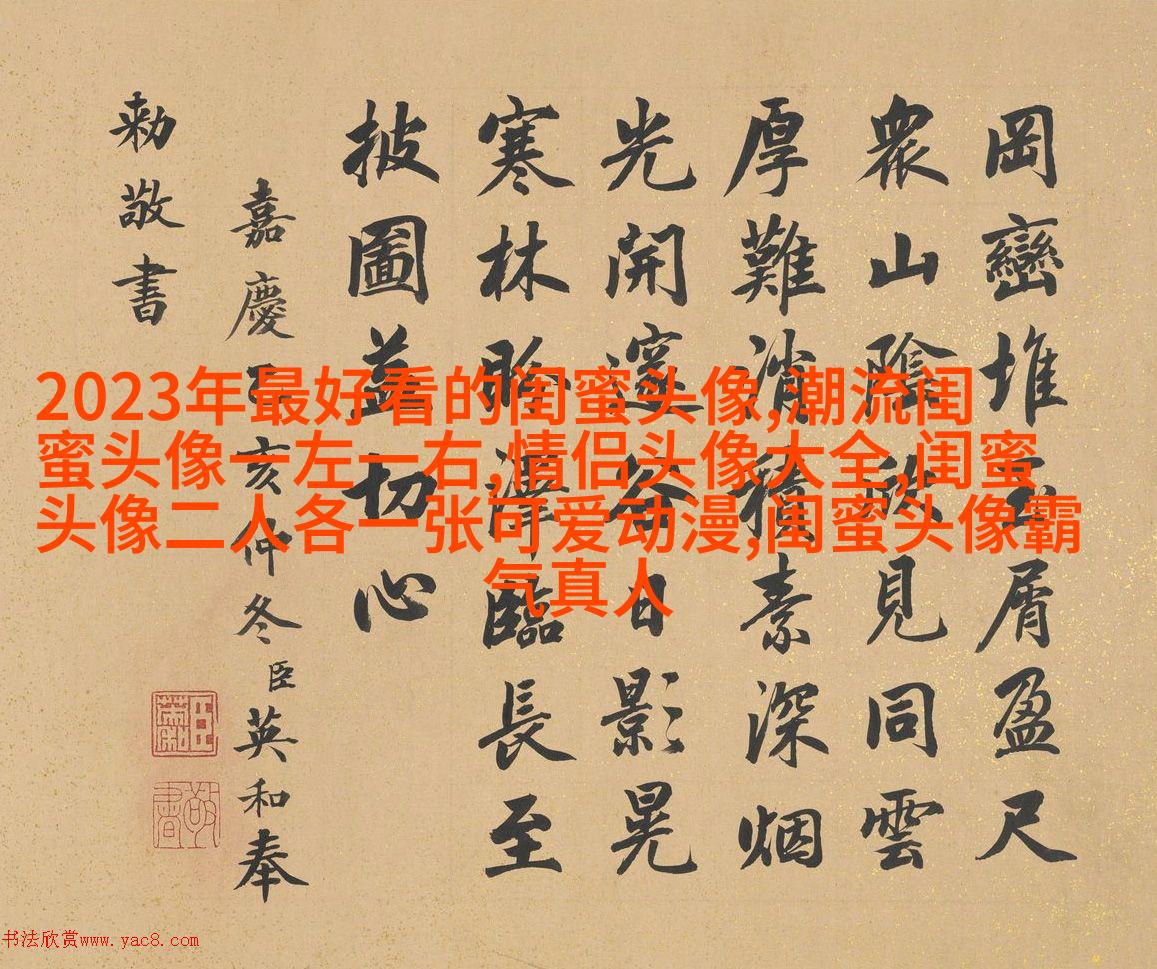 岡巒堆玉屑盈尺
衆山陰欲見同雲
厚難消積素深烟
光開邃谷日影晃
寒林盼澤臨長至
披圖益切心
嘉慶乙亥仲冬臣英和奉
勅敬書
敬書
2023年最好看的闺蜜头像,潮流闺
蜜头像一左一右,情侣头像大全,闺蜜
头像二人各一张可爱动漫,闺蜜头像霸
气真人
书法欣赏www.yac8.com